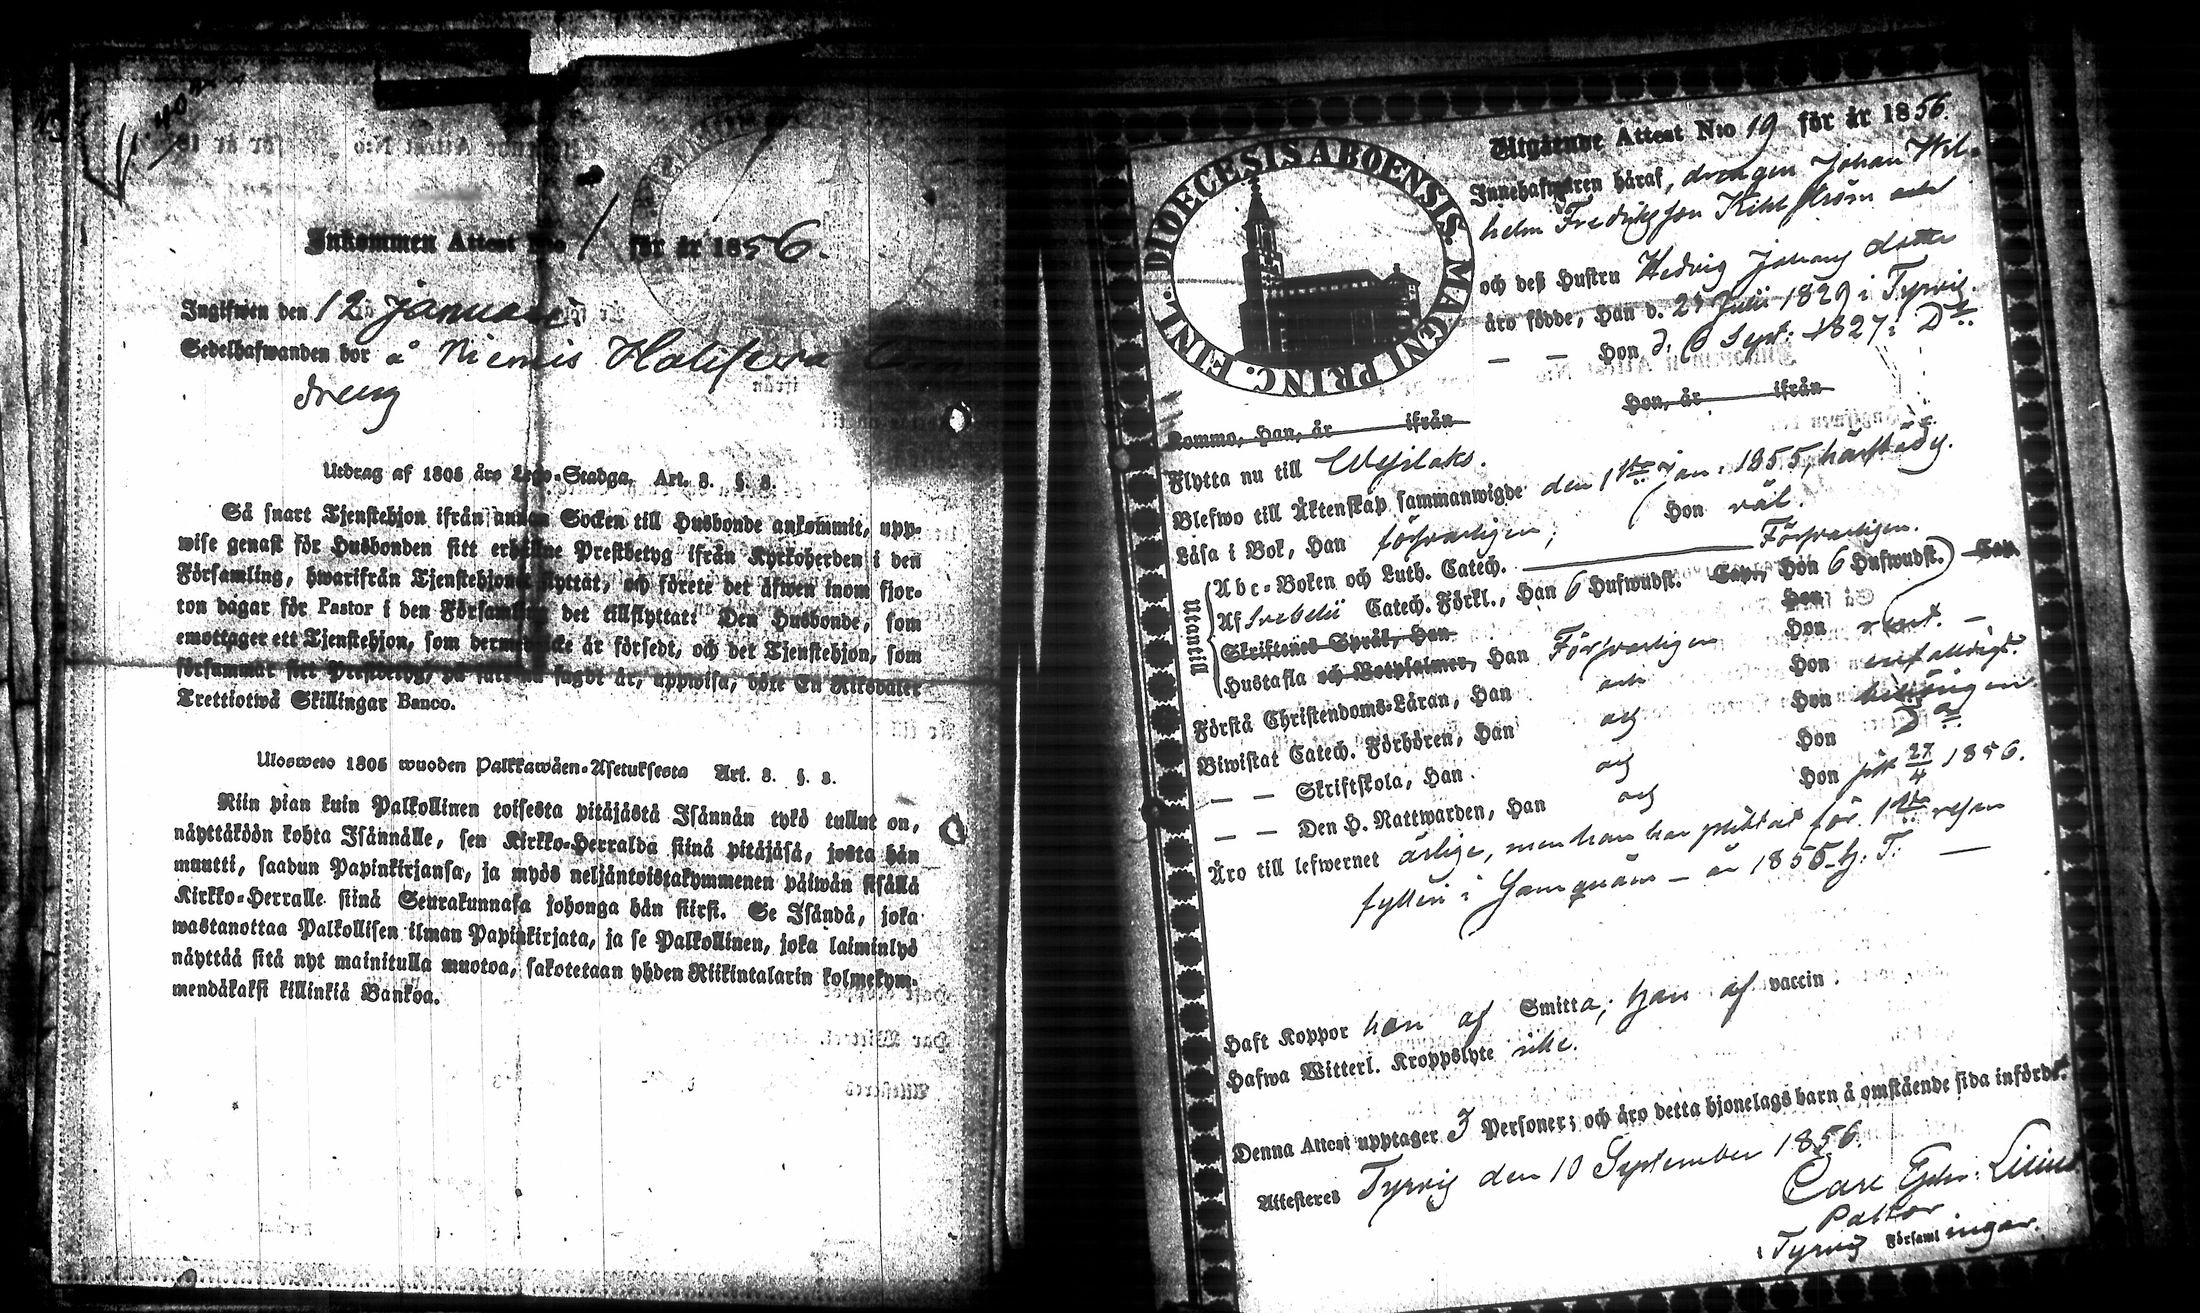 Inkommen Attest N:o 1 för år 1856.
Ingifwen den 12 Januari
Sedelhafwanden bor å Niemis
dreng
Utdrag af 1805 års Lego-Stadga. Art. 8. §. 8.
Så snart Tjenstehjon ifrån annan Socken till Husbonde ankommit, upp-
wise genast för Husbonden sitt erhållne Prestbetyg ifrån Kyrkoherden i den
Församling, hwarifrån Tjenstehjonet flyttat, och förete det äfwen inom fjor-
ton dagar för Pastor i den Församling det tillflyttat: Den Husbonde, som
emottager ett Tjenstehjon, som dermed icke är försedt, och det Tjenstehjon, som
försummar sitt Prestbetyg, på sätt nu sagdt är, uppwisa, böte En Riksdaler
Trettiotwå Skillingar Banco.
Ulosweto 1805 wuoden Palkkawäen-Asetuksesta Art. 8. §. 8.
Niin pian kuin Palkollinen toisesta pitäjästä Isännän tykö tullut on,
näyttäköön kohta Isännälle, sen Kirkko-Herralda siinä pitäjäsä, josta hän
muutti, saadun Papinkirjansa, ja myös neljäntoistakymmenen päiwän sisällä
Kirkko-Herralle siinä Seurakunnasa johonga hän siirst. Se Isändä, joka
wastanottaa Palkollisen ilman Papinkirjata, ja se Palkollinen, joka laiminlyö
näyttää sitä nyt mainitulla muotoa, sakotetaan yhden Riikintalarin kolmekym-
mendäkaksi killinkiä Bankoa.
DIOECESIS ABOENSIS. MAGNI PRINC. FINL.
Utgående Attest N:o 19 för år 1856.
Innehafwaren häraf, drengen Johan Wil-
helm Fredriksson Kihlström
och dess Hustru Hedvig Johans dotter
äro födde, Han d. 24 Julii 1829 i Tyrvis.
— — Hon d. 6 Sept: 1827 i D:o
Hon, år ifrån
Kommo, Han, år ifrån
Flytta nu till Wesilaks.
Blefwo till Äktenskap sammanwigde den 1sta Jan: 1855, härstädes.
Läsa i Bok, Han försvarligen; Hon väl.
Utantill
Abc-Boken och Luth. Catech. — Försvarligen.
Af Svebelii Catech. Förkl., Han 6 Hufwudst. Cap., Hon 6 Hufwudst. Cap.
Skriftenes Språk, Han Hon
Hustafla och Botpsalmer, Han Försvarligen Hon
Förstå Christendoms-Läran, Han och Hon enfaldigt.
Biwistat Catech. Förhören, Han och Hon behörigen
— — Skriftskola, Han och Hon D:o
— — Den H. Nattwarden, Han och Hon sist 27/4 1856.
Äro till lefwernet ärlige, men han har pliktat för 1sta resan
fylleri i - år 1855 h. T: —
Haft Koppor hon af Smitta, han af vaccin.
Hafwa Witterl. Kroppslyte icke.
Denna Attest upptager 3 Personer; och äro detta hjonelags barn å omstående sida införde.
Attesteres Tyrvis den 10 September 1856.
Carl Lilius
Pastor
i Tyrvis Församlingar.